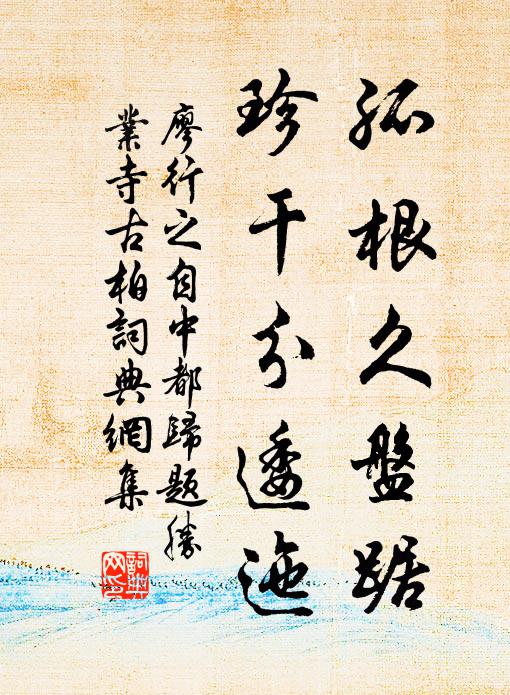 孤根久盤踞
珍干分逶迤
廖行之自中都歸題勝
業寺古柏詞典網集